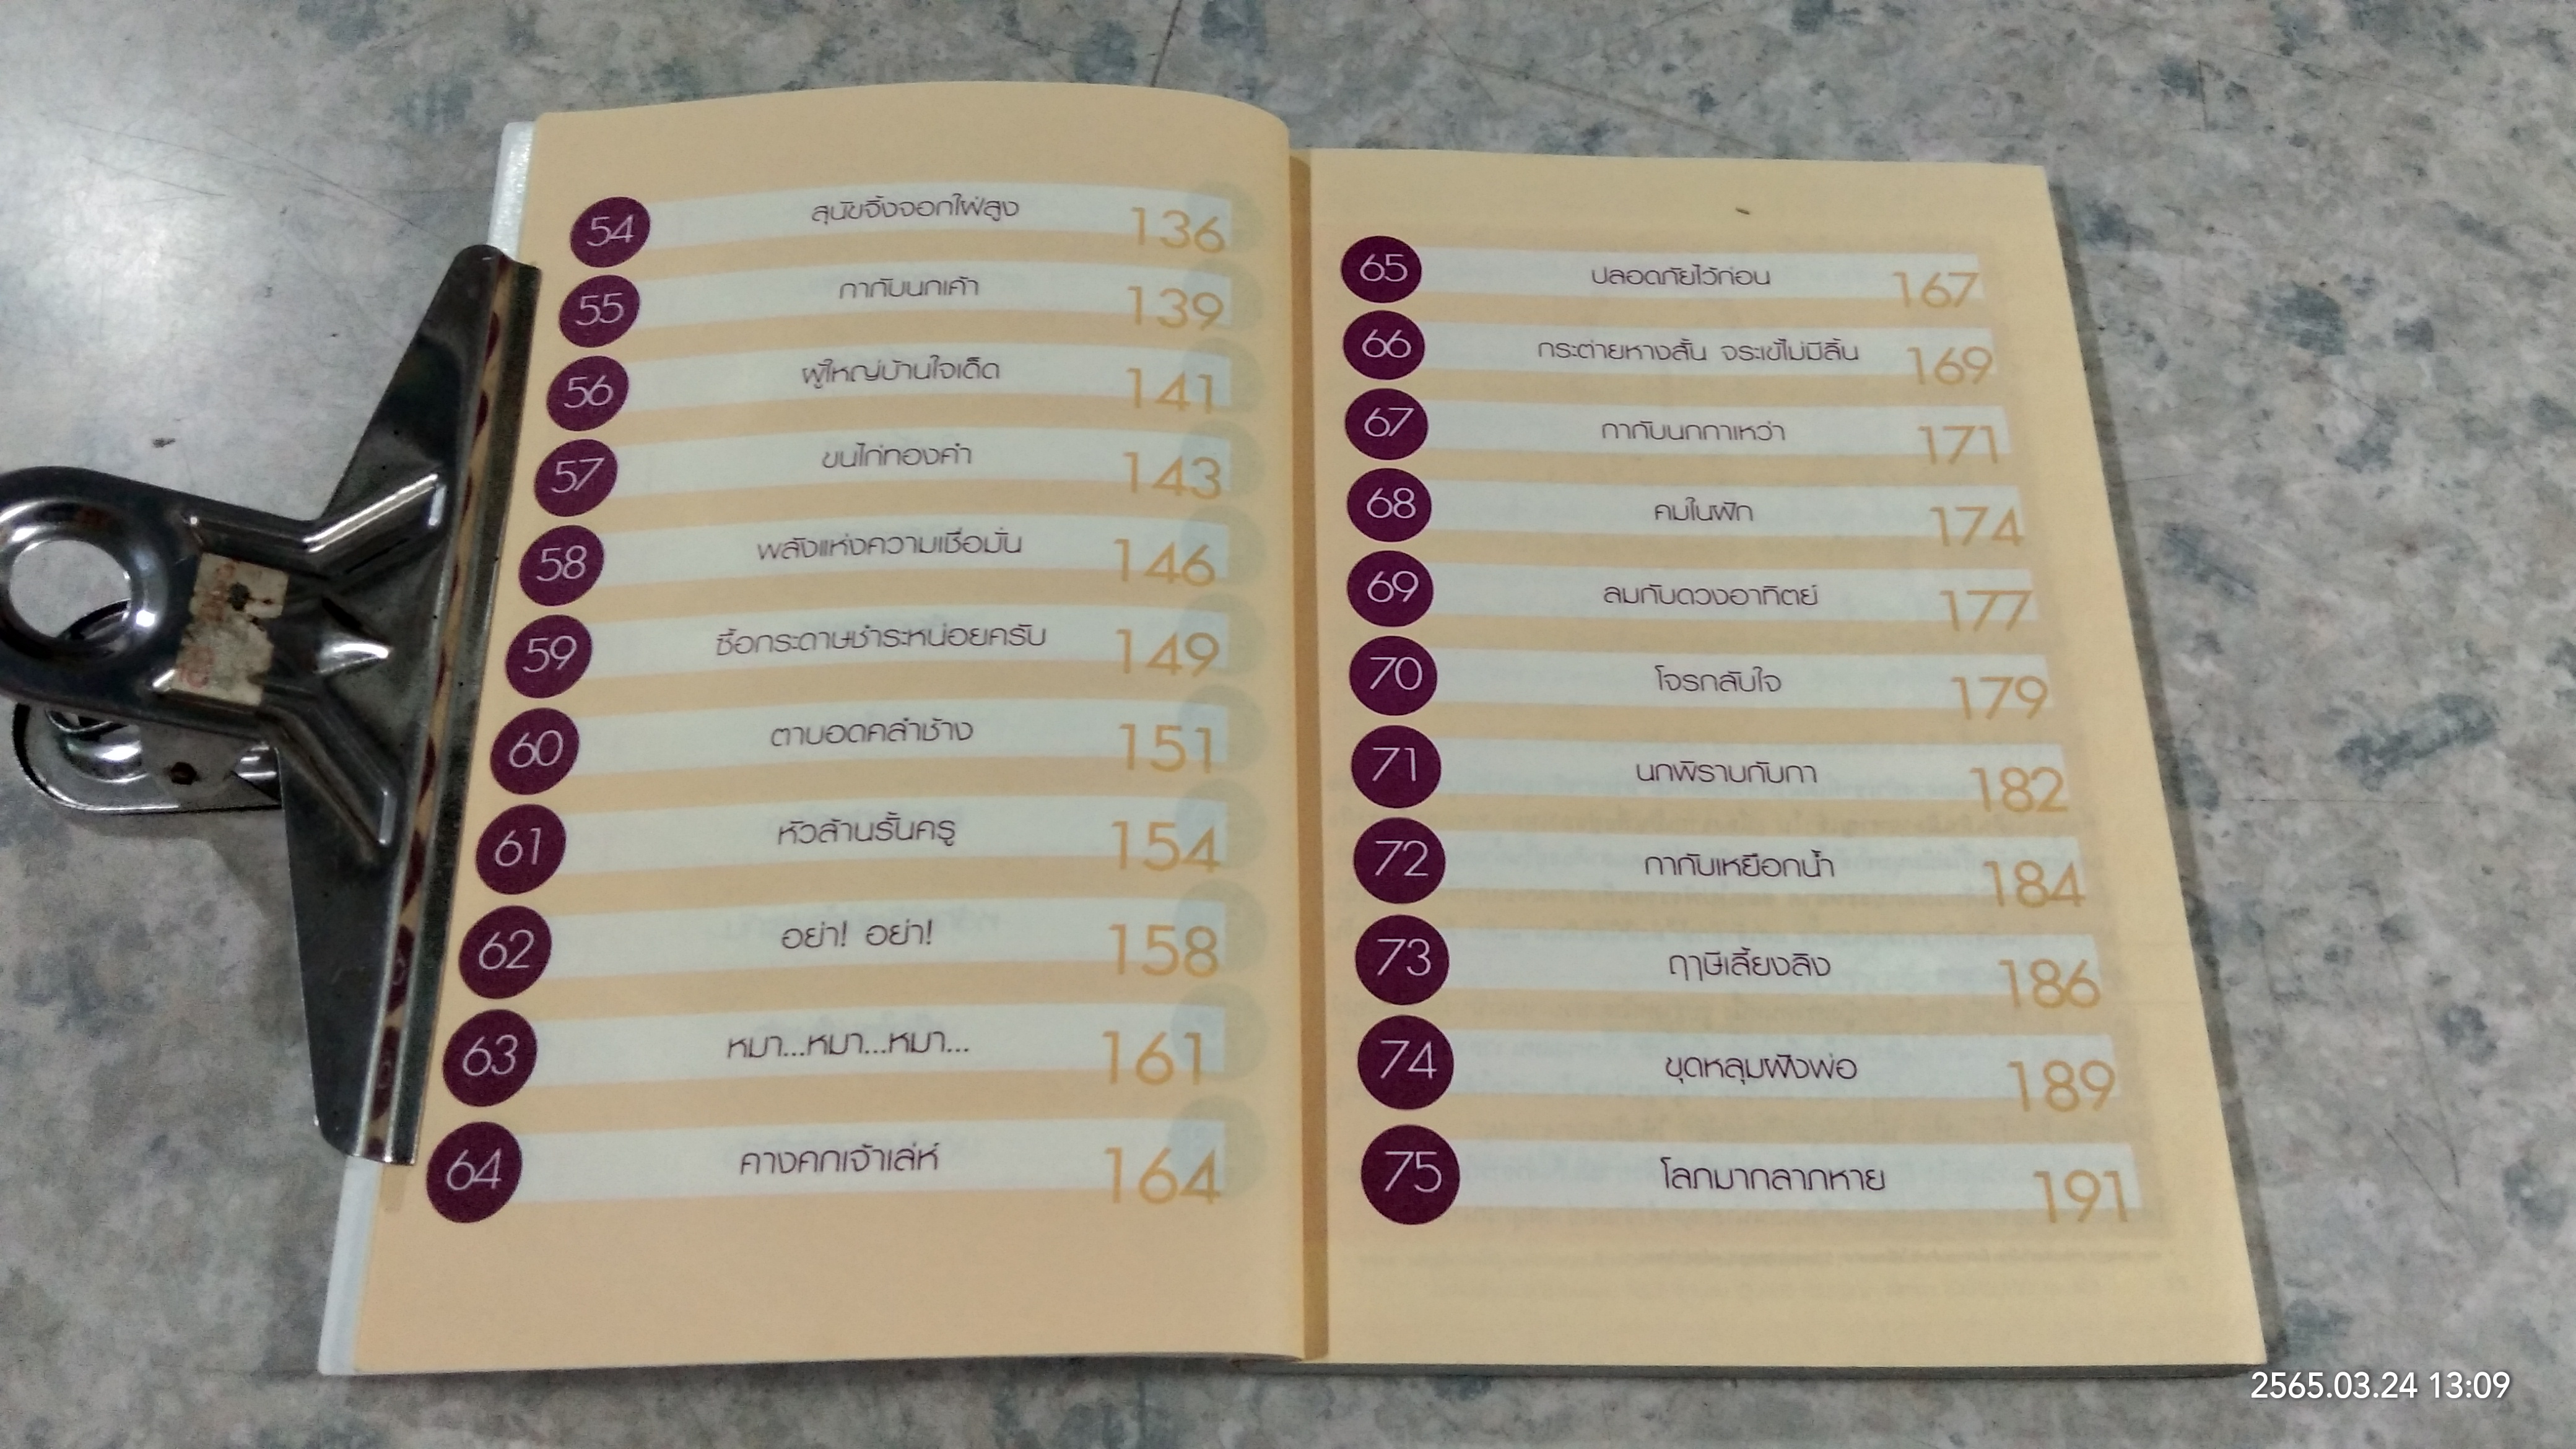 54 สุนัขจิ้งจอกใฝ่สูง 136
55 กากับนกเค้า 139
56 ผู้ใหญ่บ้านใจเด็ด 141
57 ขนไก่ทองคำ 143
58 พลังแห่งความเชื่อมั่น 146
59 ซื้อกระดาษชำระหน่อยครับ 149
60 ตาบอดคลำช้าง 151
61 หัวล้านรั้นครู 154
62 อย่า! อย่า! 158
63 หมา...หมา...หมา... 161
64 คางคกเจ้าเล่ห์ 164
65 ปลอดภัยไว้ก่อน 167
66 กระต่ายหางสั้น จระเข้ไม่มีลิ้น 169
67 กากับนกกาเหว่า 171
68 คมในฝัก 174
69 ลมกับดวงอาทิตย์ 177
70 โจรกลับใจ 179
71 นกพิราบกับกา 182
72 กากับเหยือกน้ำ 184
73 ฤๅษีเลี้ยงลิง 186
74 ขุดหลุมฝังพ่อ 189
75 โลภมากลาภหาย 191
2565.03.24 13:09